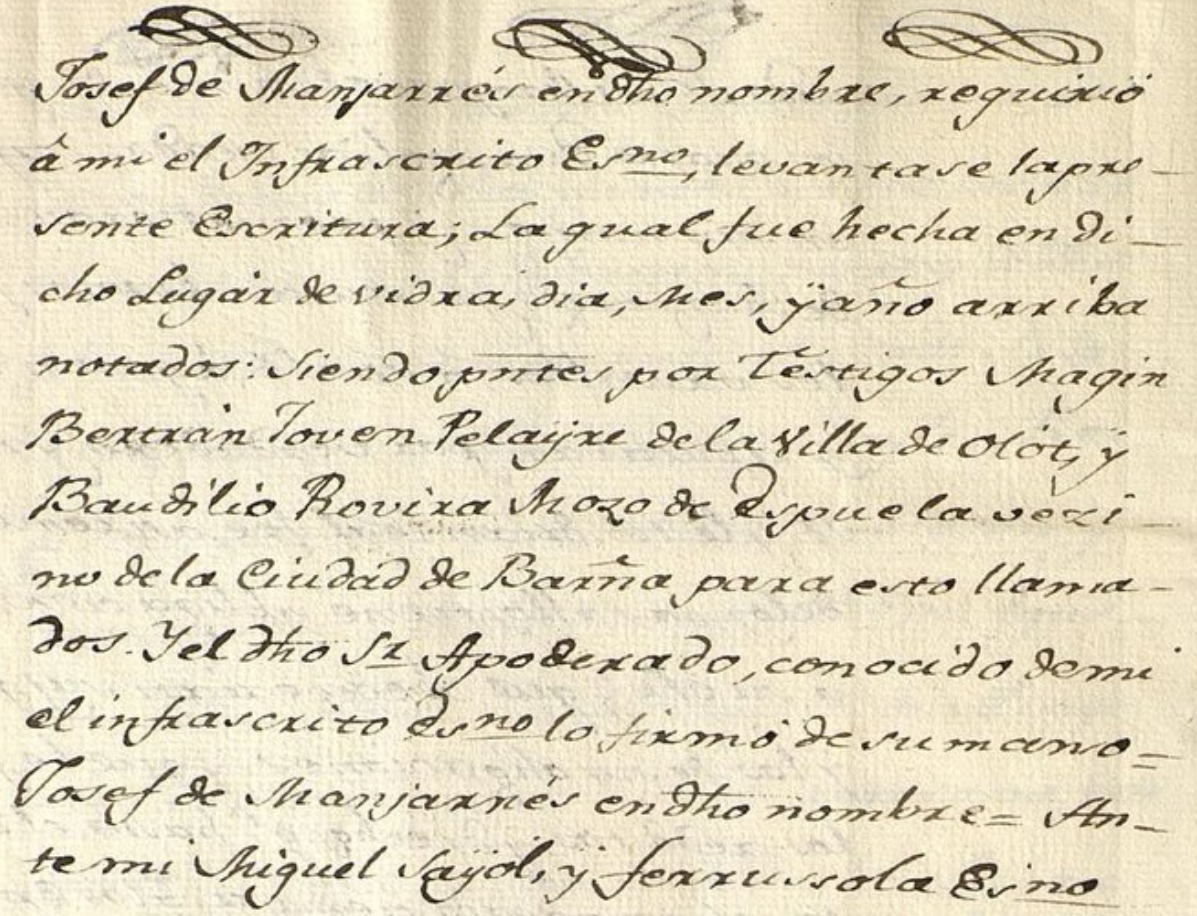 Josef de Manjarrés en dho nombre, requirió
â mi el Infrascrito Esno, levantase la pre-
sente Escritura; La qual fue hecha en di-
cho Lugar de vidra, dia, Mes, ÿ año arriba
notados: Siendo pntes por Testigos Magin
Bertrán Joven Pelaÿre de la Villa de Olót, ÿ
Baudilio Rovira Mozo de Espuela vezi-
no de la Ciudad de Barña para esto llama-
dos. Y el dho Sr Apoderado, conocido de mi
el infrascrito Esno lo firmó de su mano=
Josef de Manjarrés en dho nombre= An-
te mi Miguel Sayól, y ferrussola Esno